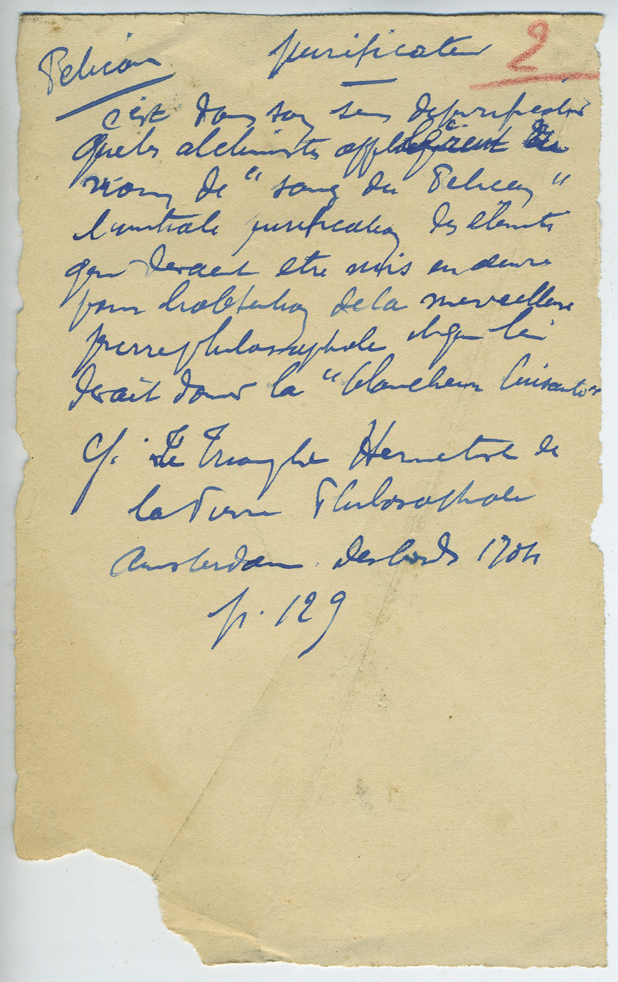 Pelican purificateur 2
c'est dans son sens de purificateur
que les alchimistes appliquèrent le
nom de "sang du Pelican"
l'initiale purification des éléments
qui devait etre mis en œuvre
pour l'obtention de la merveilleuse
pierre philosophale et qui lui
devait donner la "blancheur luisante"
Cf. Le Triomphe Hermetique de
la Pierre Philosophale
Amsterdam. Desbordes 1704
p. 129